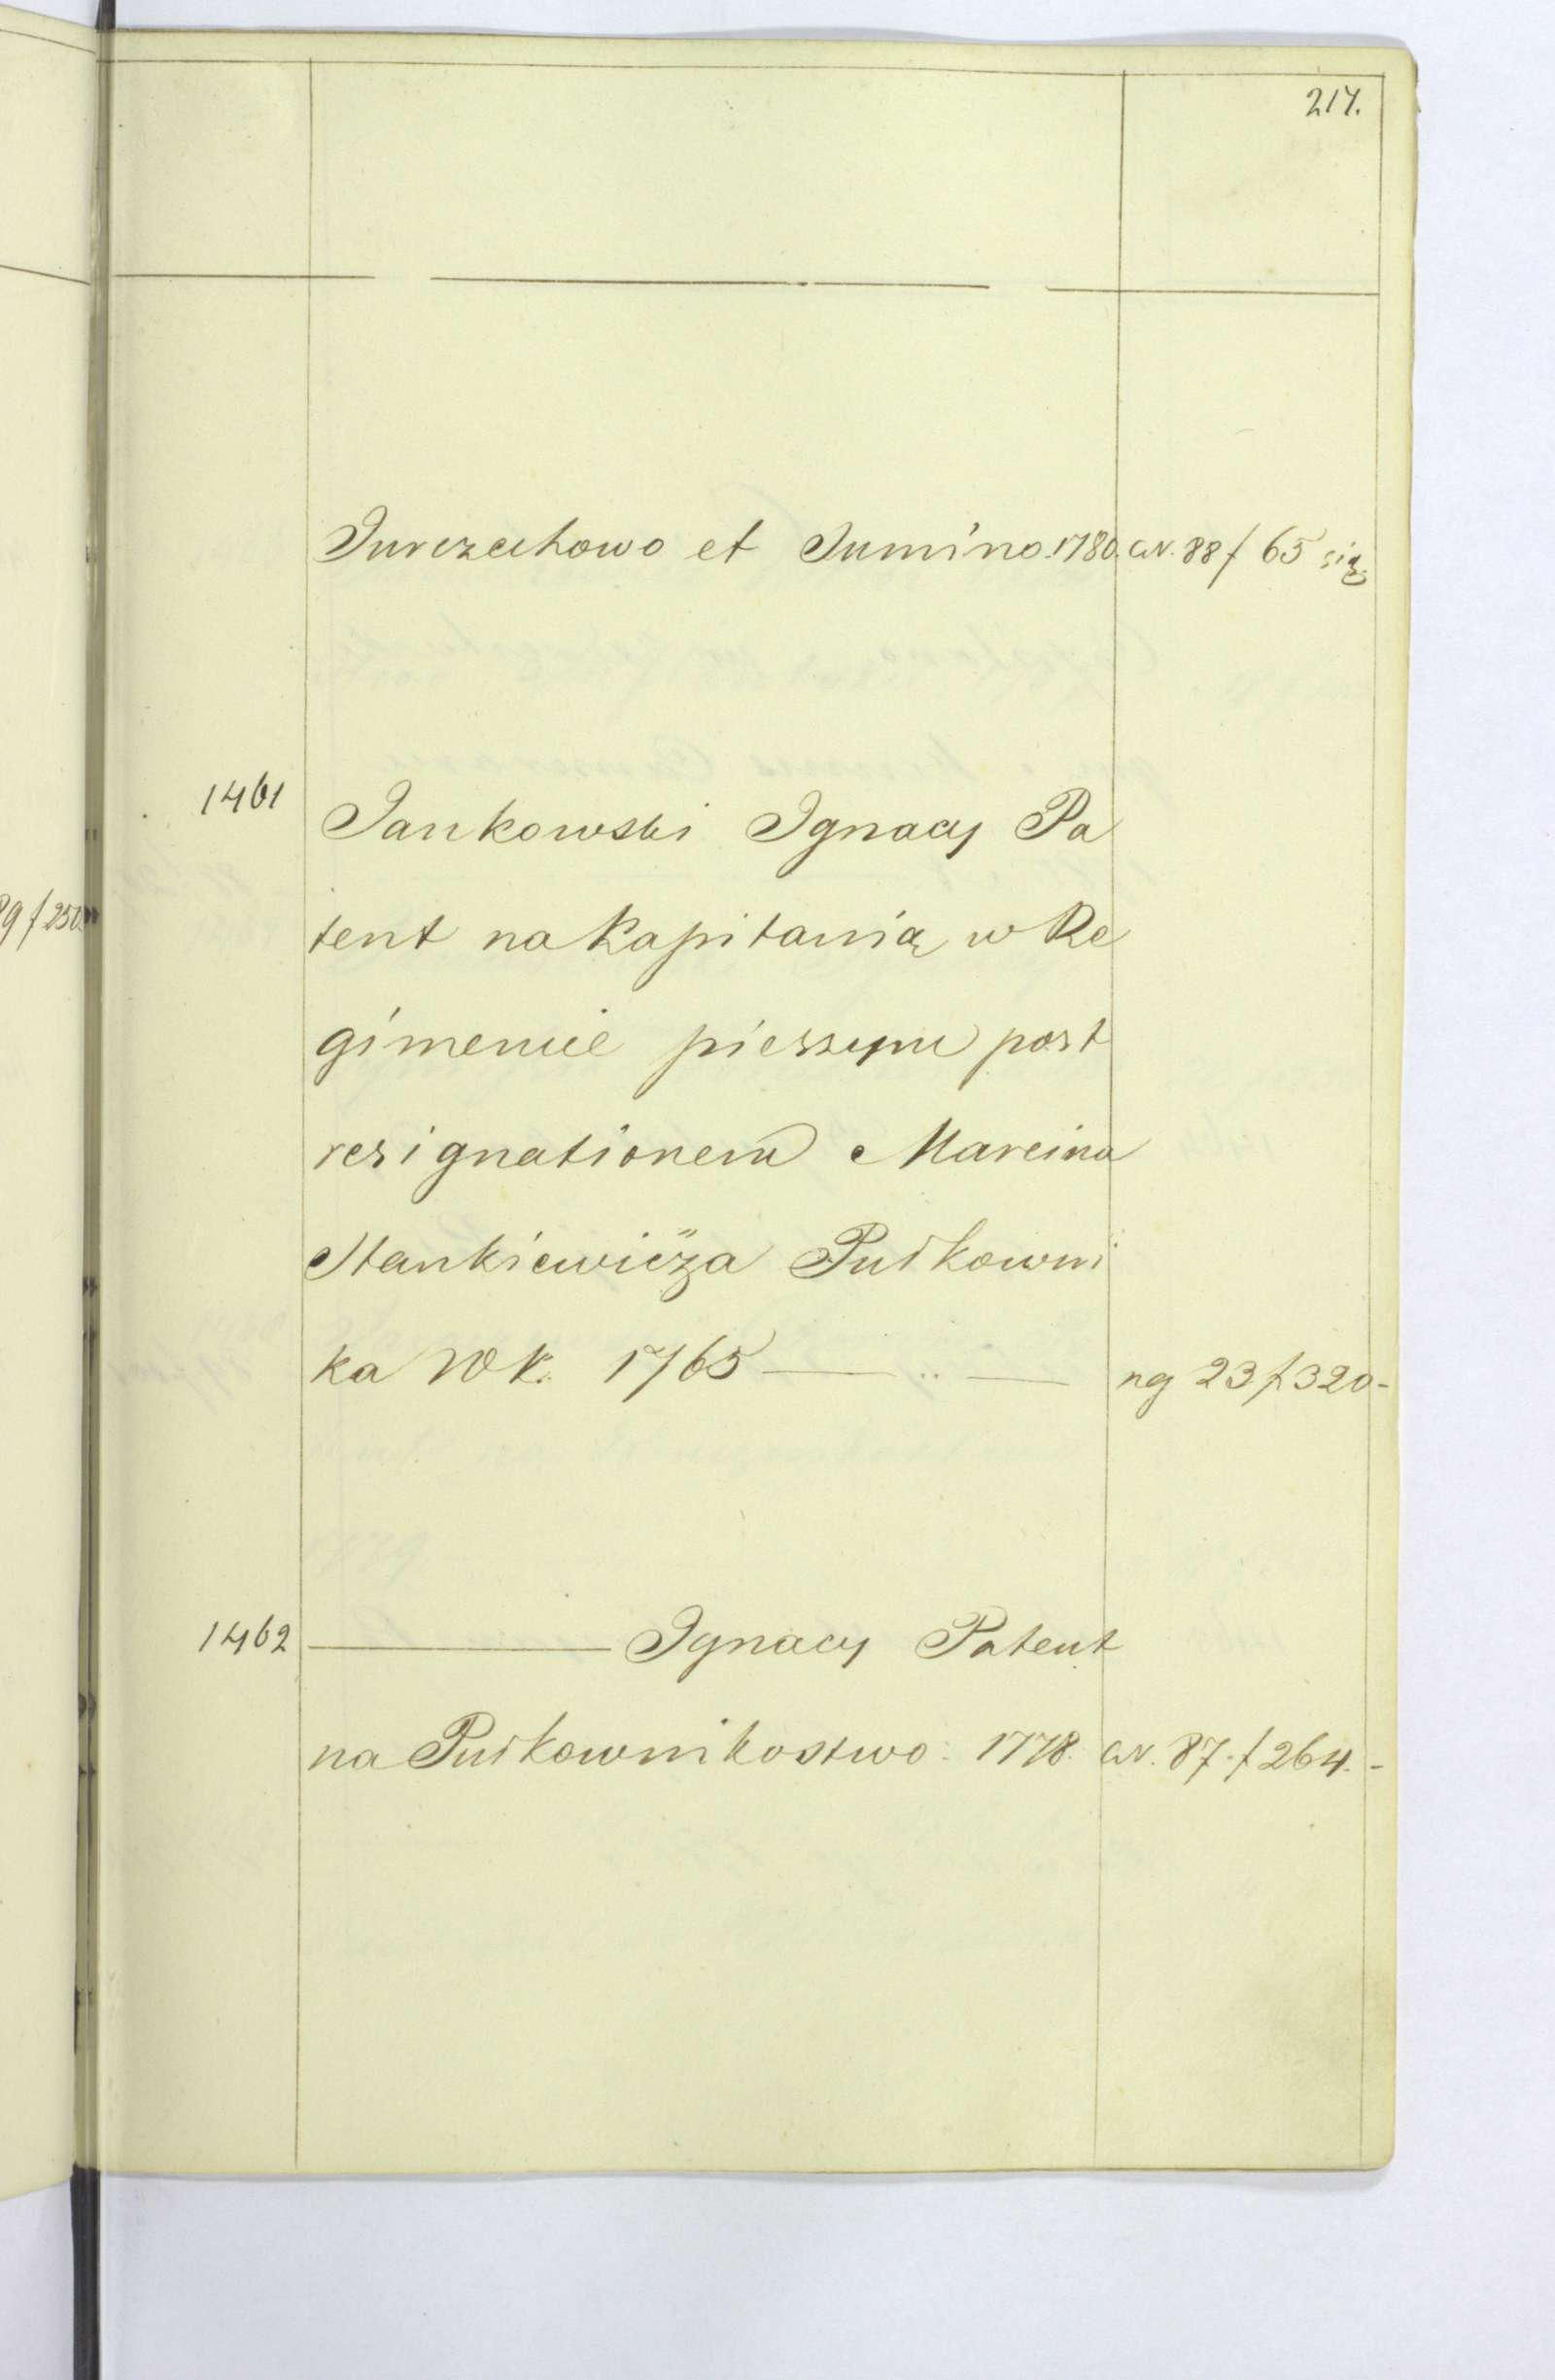 217.
Jurczechowo et Jumino. 1780. av. 88 f 65 sig.
1461
Jankowski Ignacy Pa
tent na Kapitanią w Re
89 f 250
gimencie pieszym post
resignationem Marcina
Stankiewicza Pułkowni
ka W k. 1765 — „ — ng 23 f 320 -
1462 ——— Ignacy Patent
na Pułkownikostwo. 1778. av. 87. f 264. -